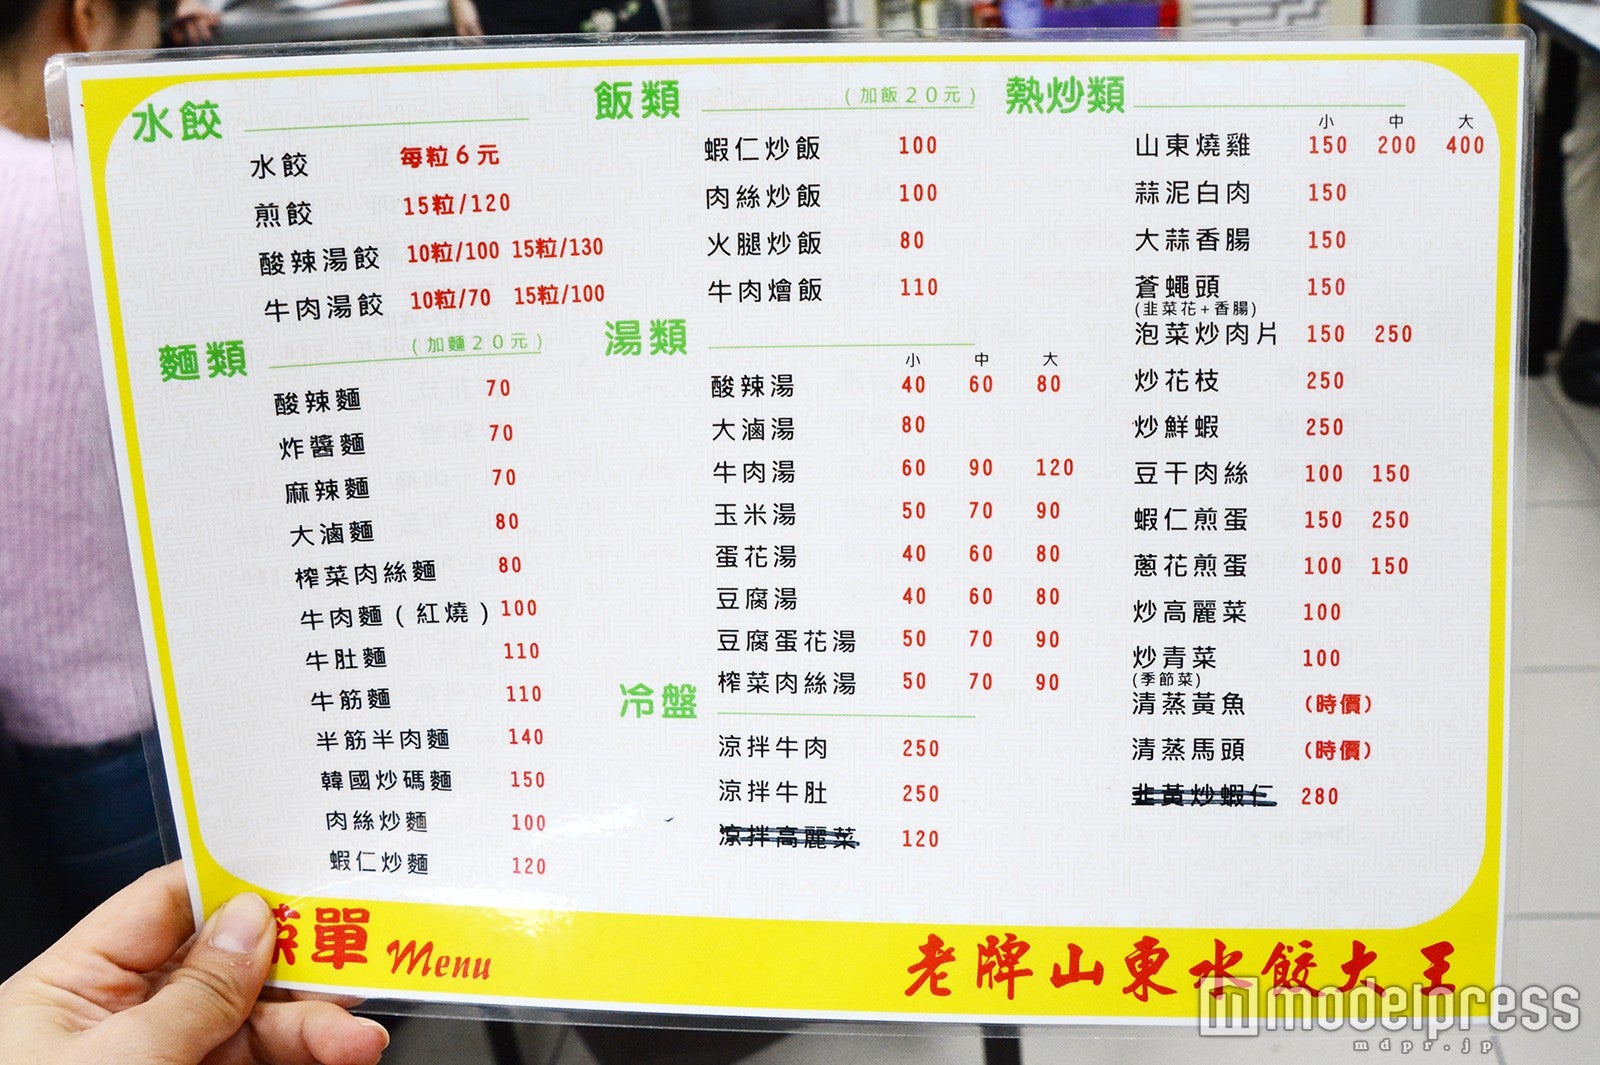 水餃
水餃 每粒６元
煎餃 15粒/120
酸辣湯餃 10粒/100 15粒/130
牛肉湯餃 10粒/70 15粒/100
麵類 (加麵２０元)
酸辣麵 70
炸醬麵 70
麻辣麵 70
大滷麵 80
榨菜肉絲麵 80
牛肉麵(紅燒) 100
牛肚麵 110
牛筋麵 110
半筋半肉麵 140
韓國炒碼麵 150
肉絲炒麵 100
蝦仁炒麵 120
飯類 (加飯２０元)
蝦仁炒飯 100
肉絲炒飯 100
火腿炒飯 80
牛肉燴飯 110
湯類
小 中 大
酸辣湯 40 60 80
大滷湯 80
牛肉湯 60 90 120
玉米湯 50 70 90
蛋花湯 40 60 80
豆腐湯 40 60 80
豆腐蛋花湯 50 70 90
榨菜肉絲湯 50 70 90
冷盤
涼拌牛肉 250
涼拌牛肚 250
涼拌高麗菜 120
熱炒類
小 中 大
山東燒雞 150 200 400
蒜泥白肉 150
大蒜香腸 150
蒼蠅頭 150
(韭菜花+香腸)
泡菜炒肉片 150 250
炒花枝 250
炒鮮蝦 250
豆干肉絲 100 150
蝦仁煎蛋 150 250
蔥花煎蛋 100 150
炒高麗菜 100
炒青菜 100
(季節菜)
清蒸黃魚 (時價)
清蒸馬頭 (時價)
韭黃炒蝦仁 280
菜單 Menu
老牌山東水餃大王
modelpress
mdpr.jp